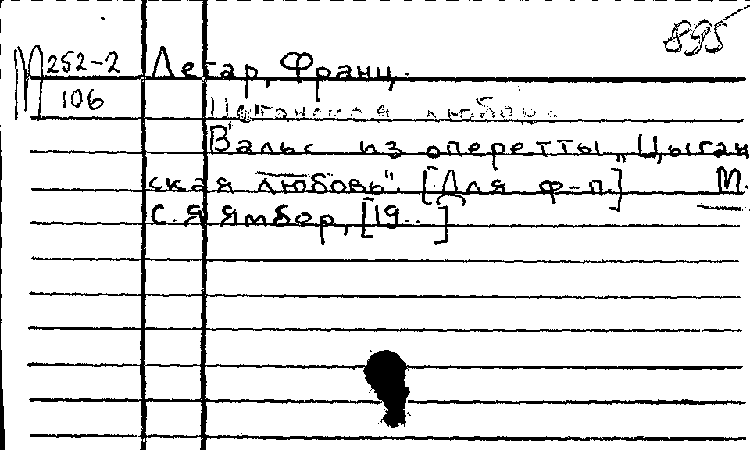 895
М252-2 Легар, Франц.
106
Цыганская любовь
Вальс из оперетты „Цыган
ская любовь". [Для ф-п.] М.
С. Я Ямбор, [19..]